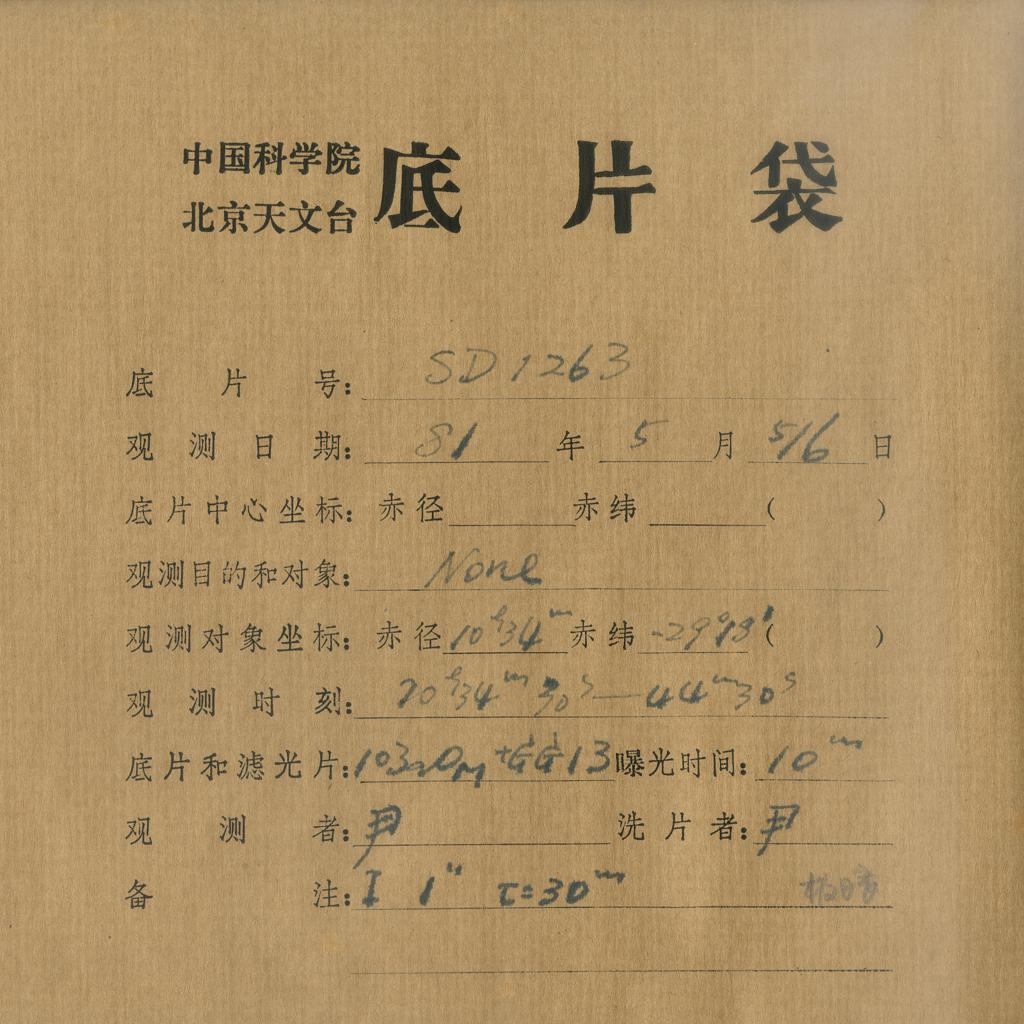 中国科学院
北京天文台
底片袋
底片号: SD1263
观测日期: 81年5月5/6日
底片中心坐标: 赤径 赤纬 ( )
观测目的和对象: None
观测对象坐标: 赤径 10h34m 赤纬 ( )
观测时刻: 34m30s—44m30s
底片和滤光片: +GG13 曝光时间: 10m
观测者: 尹 洗片者: 尹
备注: I 1" τ=30m